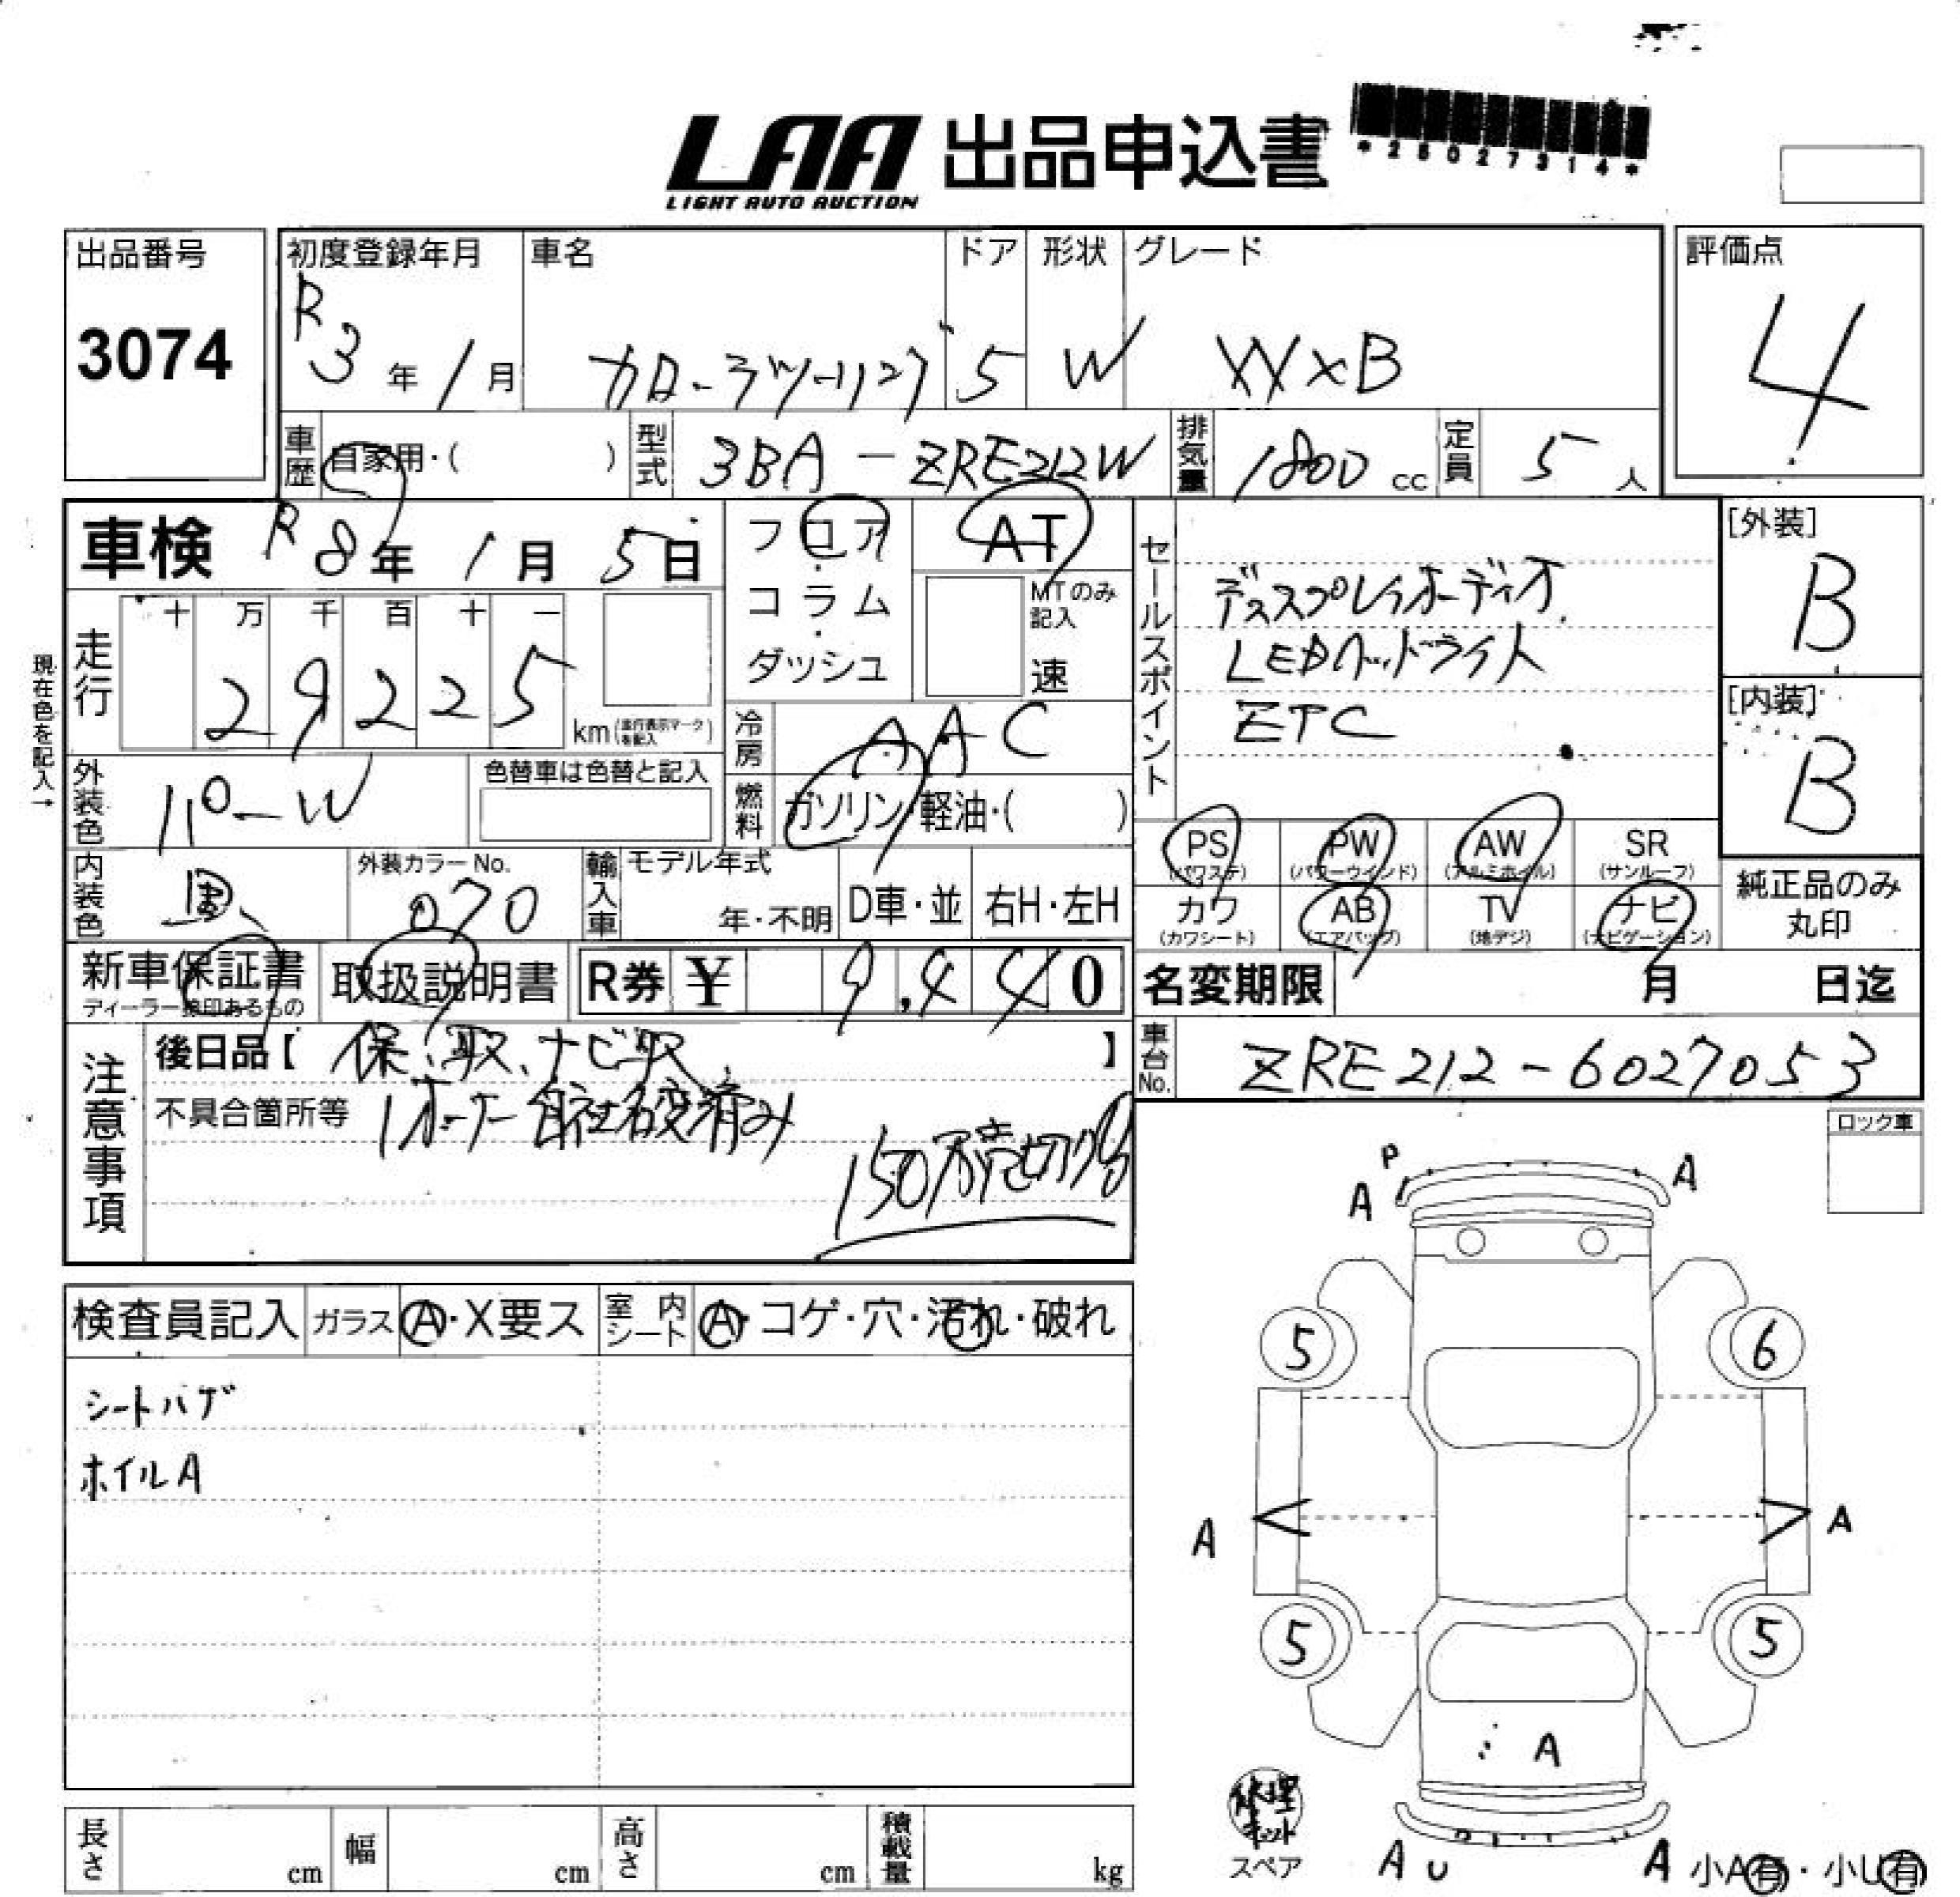 LAA 出品申込書
LIGHT AUTO AUCTION
*25027314*
出品番号
3074
初度登録年月
R3年1月
車名
カローラツーリング
ドア
5
形状
W
グレード
W×B
評価点
4
車歴
自家用・( )
型式
3BA-ZRE212W
排気量
1800 cc
定員
5人
車検 R8年1月5日
フロア
コラム
ダッシュ
AT
MTのみ記入
速
走行
十 万 千 百 十 一
29225
km (走行表示マークを記入)
現在色を記入→
冷房
AAC
燃料
ガソリン・軽油・( )
外装色
パールW
色替車は色替と記入
内装色
黒
外装カラーNo.
070
輸入車
モデル年式
年・不明
D車・並
右H・左H
セールスポイント
ディスプレイオーディオ
LEDヘッドライト
ETC
[外装]
B
[内装]
B
PS (パワステ)
PW (パワーウインド)
AW (アルミホイル)
SR (サンルーフ)
カワ (カワシート)
AB (エアバッグ)
TV (地デジ)
ナビ (ナビゲーション)
純正品のみ丸印
新車保証書
ディーラー捺印あるもの
取扱説明書
R券 ¥ 9,440
名変期限 月 日迄
注意事項
後日品【 保、取、ナビ取 】
不具合箇所等 1オーナー 自社名変済み
150万売切り
車台No.
ZRE212-6027053
ロック車
検査員記入
ガラス
A・X要ス
室内シート
A・コゲ・穴・汚れ・破れ
シートハゲ
ホイルA
P
A
A
5
6
A
A
5
5
A
修理キット
スペア
A U
A
小A有・小U有
長さ cm
幅 cm
高さ cm
積載量 kg